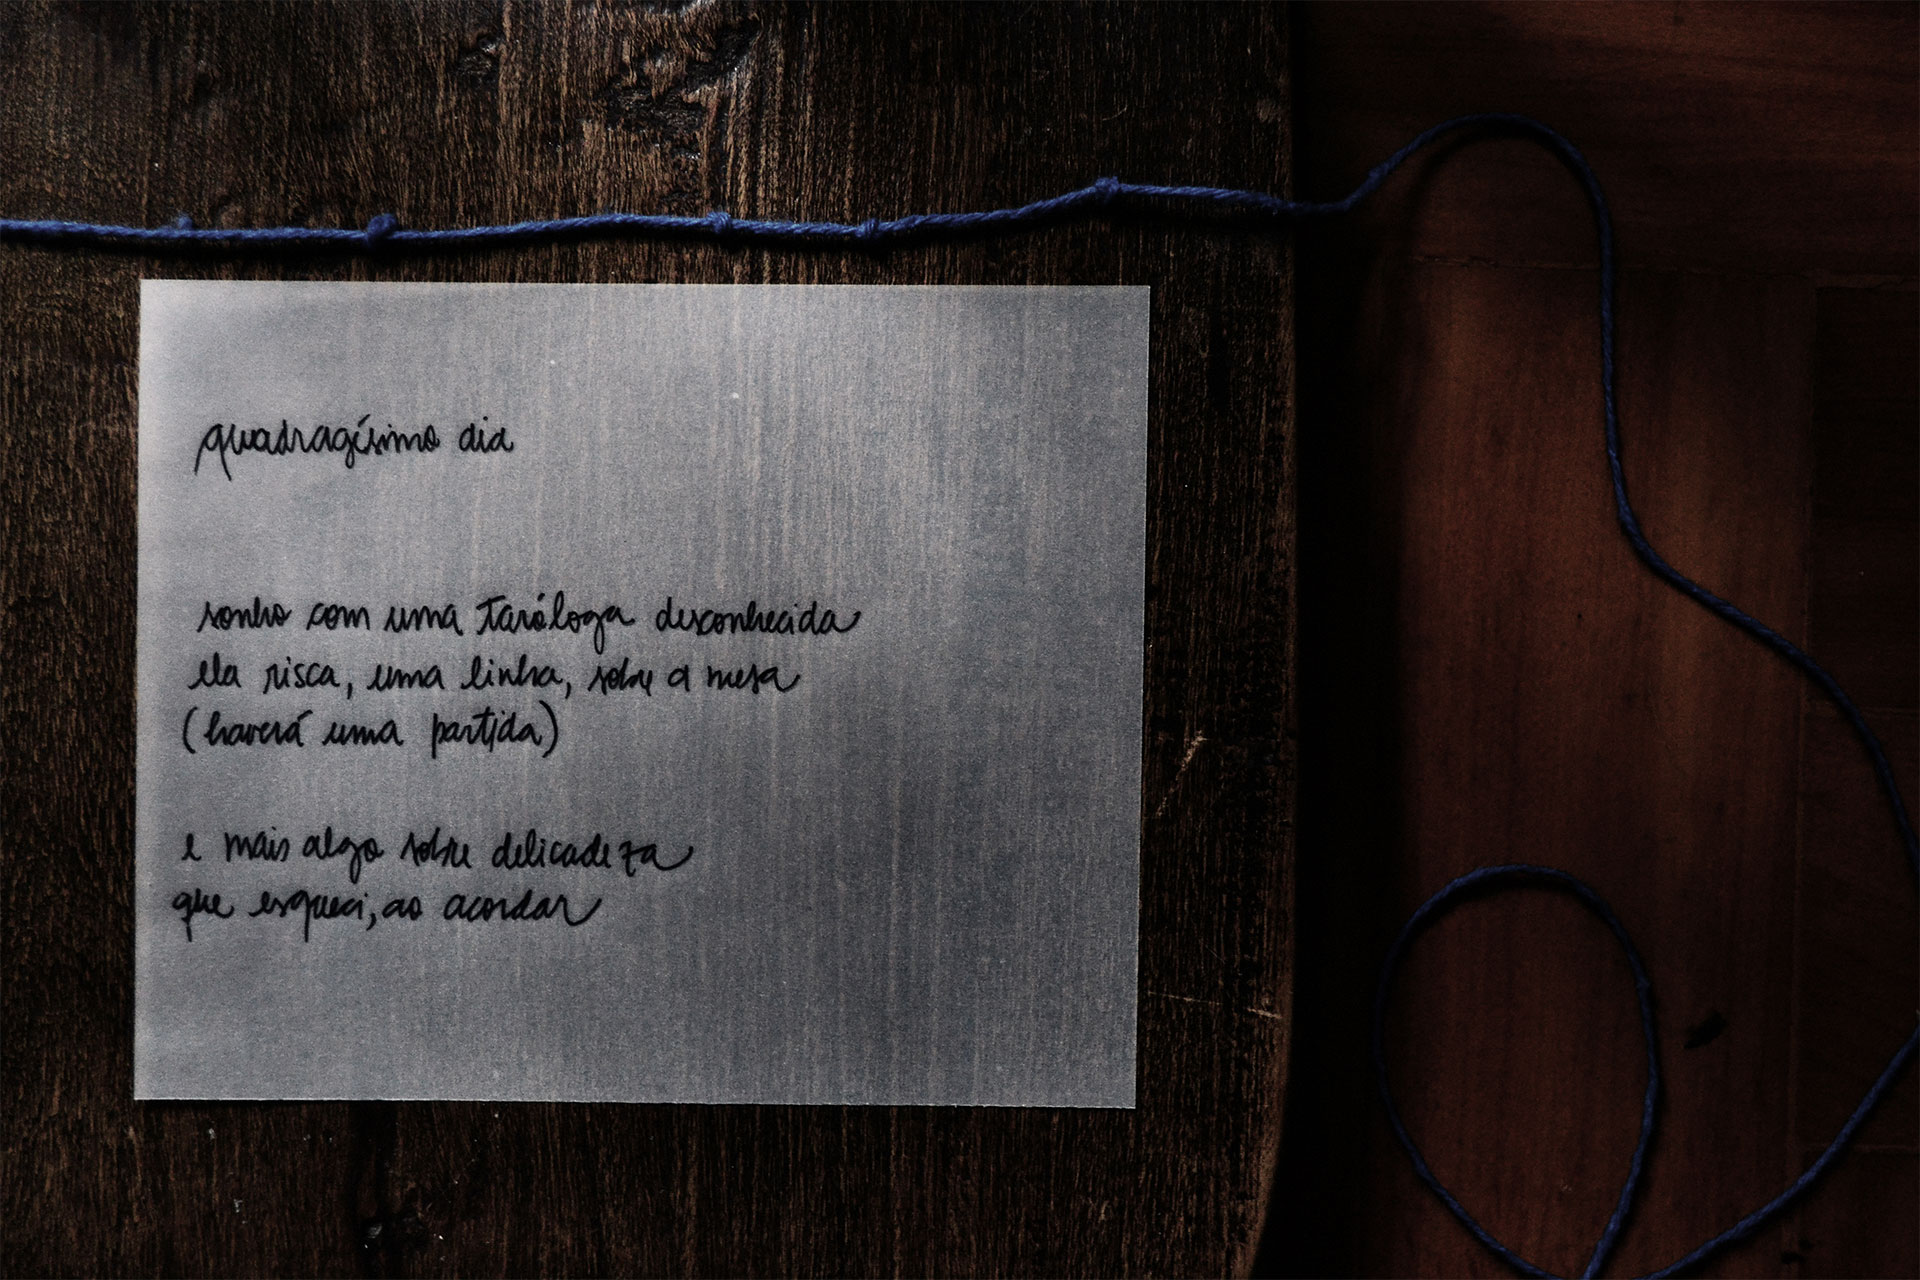 quadragésimo dia
sonho com uma taróloga desconhecida
ela risca, uma linha, sobre a mesa
(haverá uma partida)
e mais algo sobre delicadeza
que esqueci, ao acordar